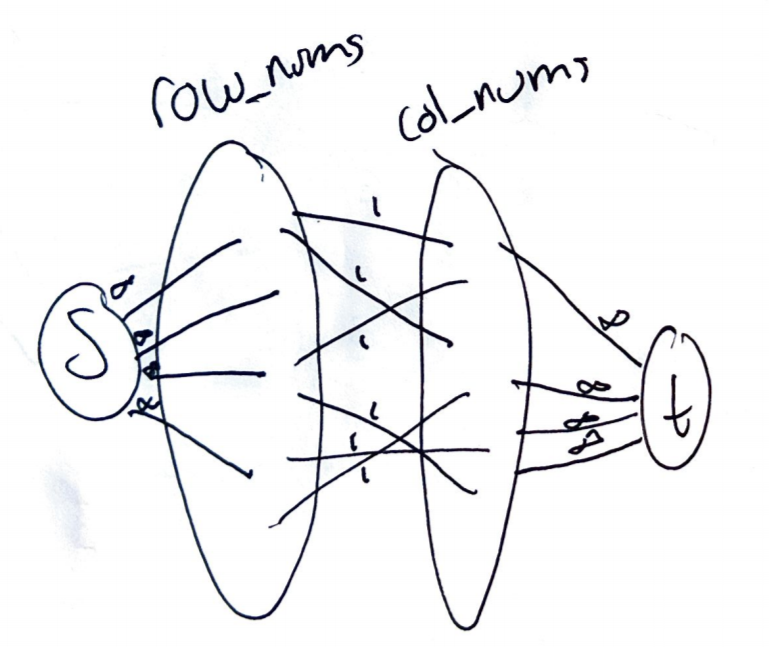 row_nums
col_nums
S
t
1
1
1
1
1
1
∞
∞
∞
∞
∞
∞
∞
∞